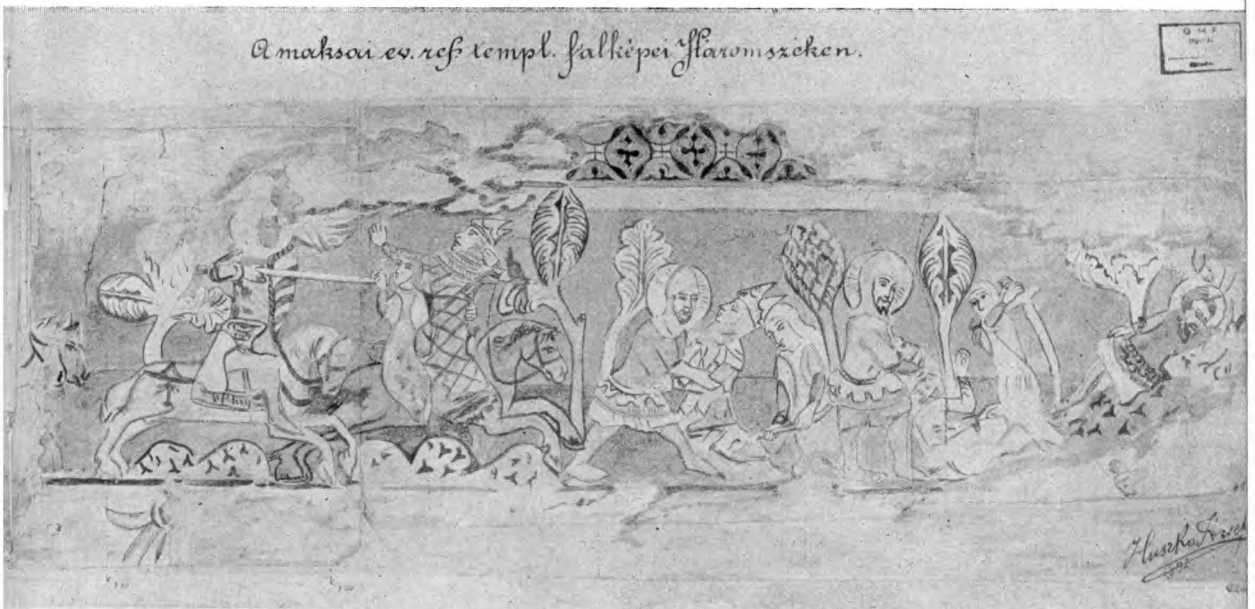 A maksai ev. ref. templ. falképei Háromszéken.
O M F
Huszka József